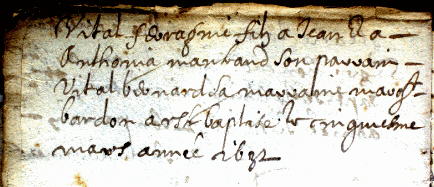 Vital feragnie filz a Jean & a
Anthonia marbaud son parrain
Vital bernard sa marraine margt
bardon a este baptise le cinquiesme
mars année